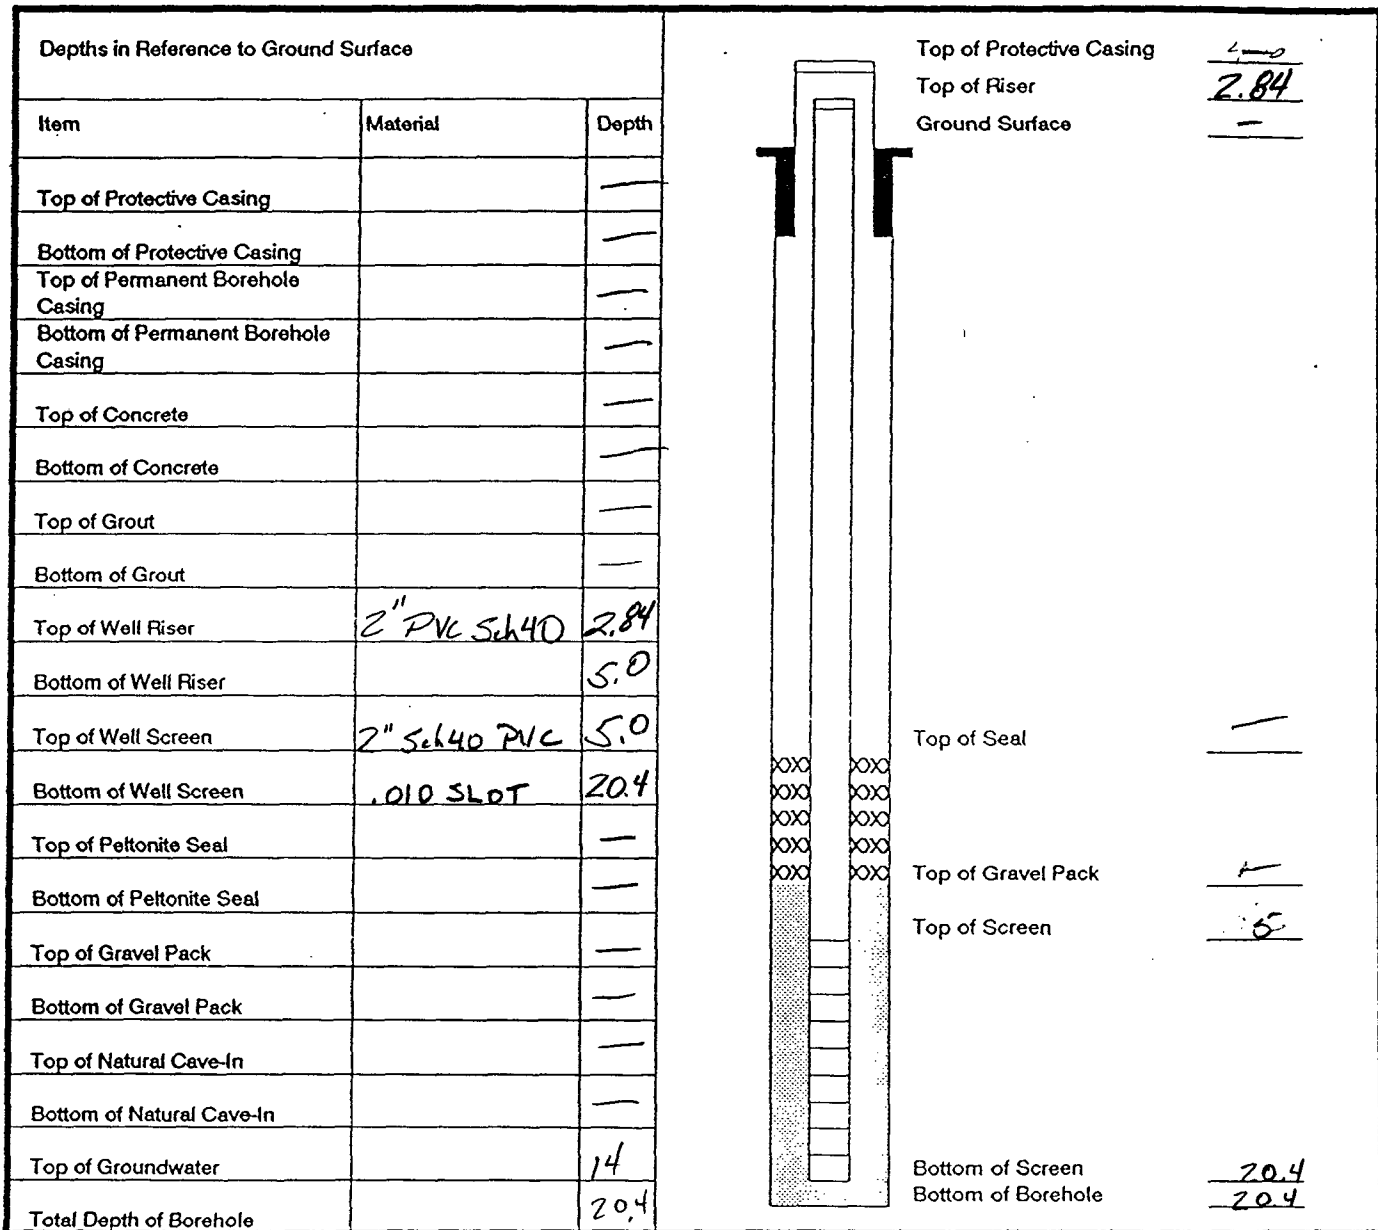 Depths in Reference to Ground Surface
Item Material Depth
Top of Protective Casing —
Bottom of Protective Casing —
Top of Permanent Borehole
Casing —
Bottom of Permanent Borehole
Casing —
Top of Concrete —
Bottom of Concrete —
Top of Grout —
Bottom of Grout —
Top of Well Riser 2" PVC Sch40 2.84
Bottom of Well Riser 5.0
Top of Well Screen 2" Sch40 PVC 5.0
Bottom of Well Screen .010 SLOT 20.4
Top of Peltonite Seal —
Bottom of Peltonite Seal —
Top of Gravel Pack —
Bottom of Gravel Pack —
Top of Natural Cave-In —
Bottom of Natural Cave-In —
Top of Groundwater 14
Total Depth of Borehole 20.4
Top of Protective Casing
Top of Riser 2.84
Ground Surface —
Top of Seal —
Top of Gravel Pack —
Top of Screen 5
Bottom of Screen 20.4
Bottom of Borehole 20.4